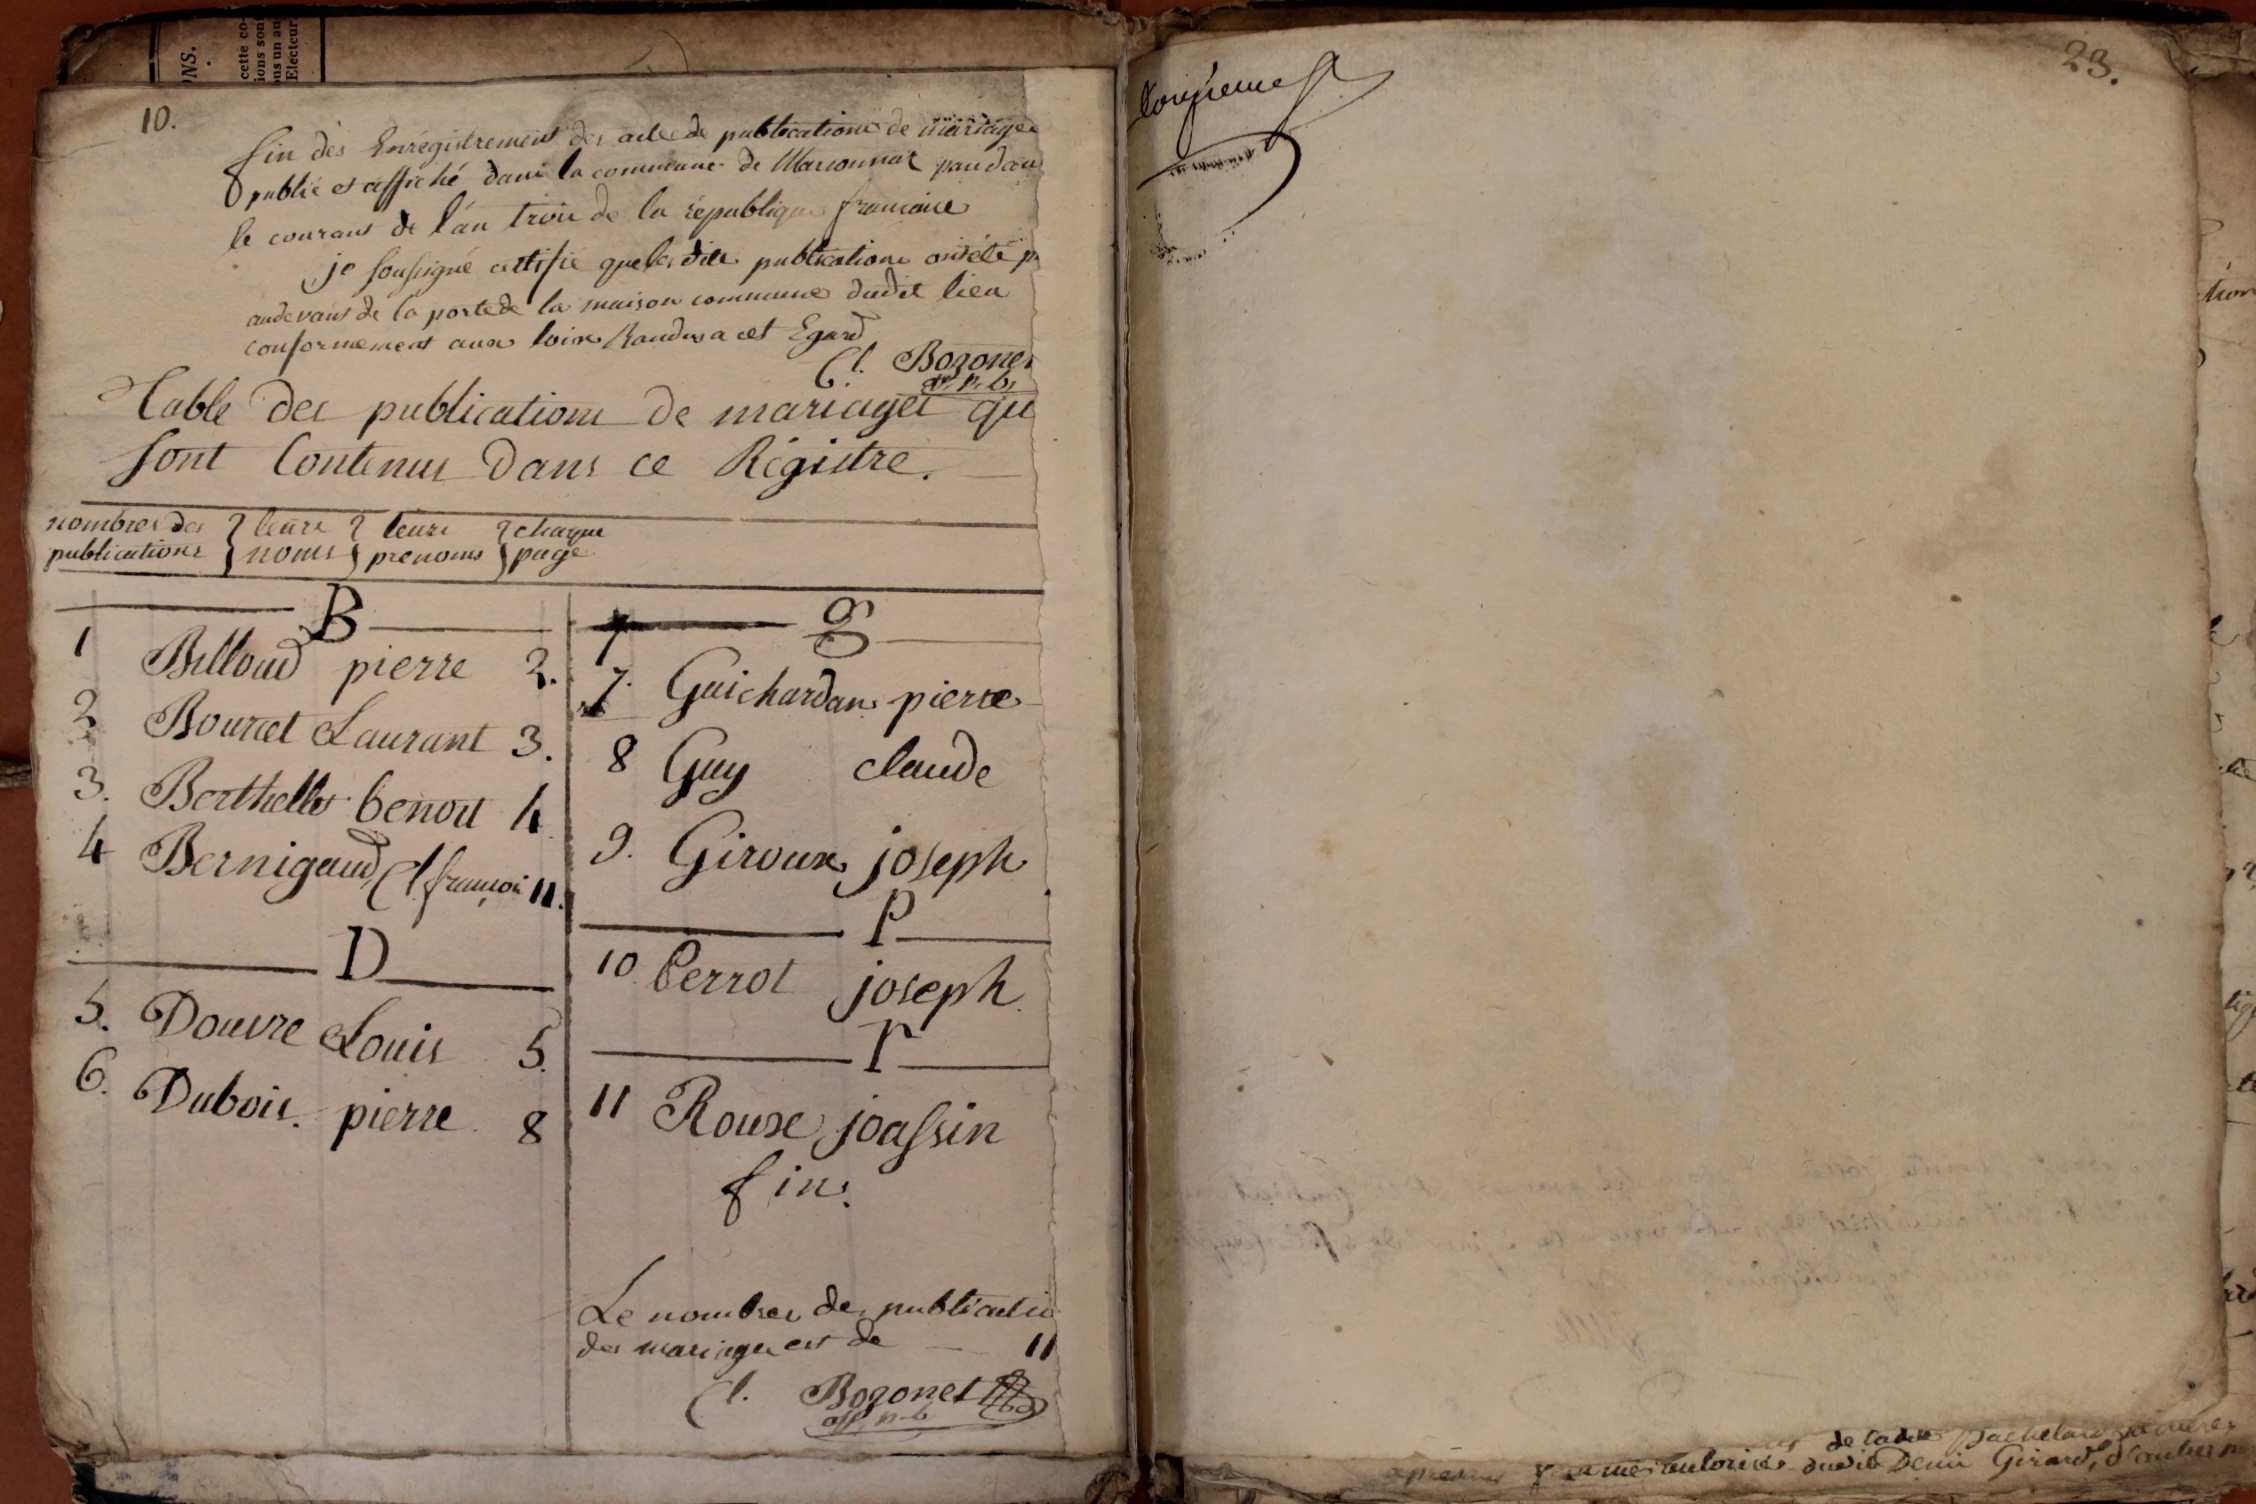 NS.
cette co-
ions son
ous un au
Electeur
10.
fin des Enrégistrement des acte de publications de mariages
publié et affiché dans la commune de Marsonnas pandan
le courans de l'an trois de la république francaise
je soussigné certifie que lesdites publications ont été p
audevant de la porte de la maison commune dudit lieu
conformement aux loix Randus a cet Egard
Cl. Bozonet
off. p. b.
Table des publications de mariages qui
sont Contenus dans ce Régistre.
nombres des publications } leurs noms } leurs prenoms } chaque page
B
1 Billoud pierre 2.
2 Bourcet Laurant 3.
3. Berthellet benoit 4
4 Bernigaud Cl. françois 11.
D
5. Douvre Louis 5.
6. Dubois pierre 8
7 g
7. Guichardan pierre
8 Guy claude
9. Giroux joseph
P
10 Perrot joseph
r
11 Roux joassin
fin.
Le nombres des publicatio
des mariages est de 11
Cl. Bozonet
off. p. b
23.
de ladite Pachelard
autorisé dudit Denis Girard, d'autre